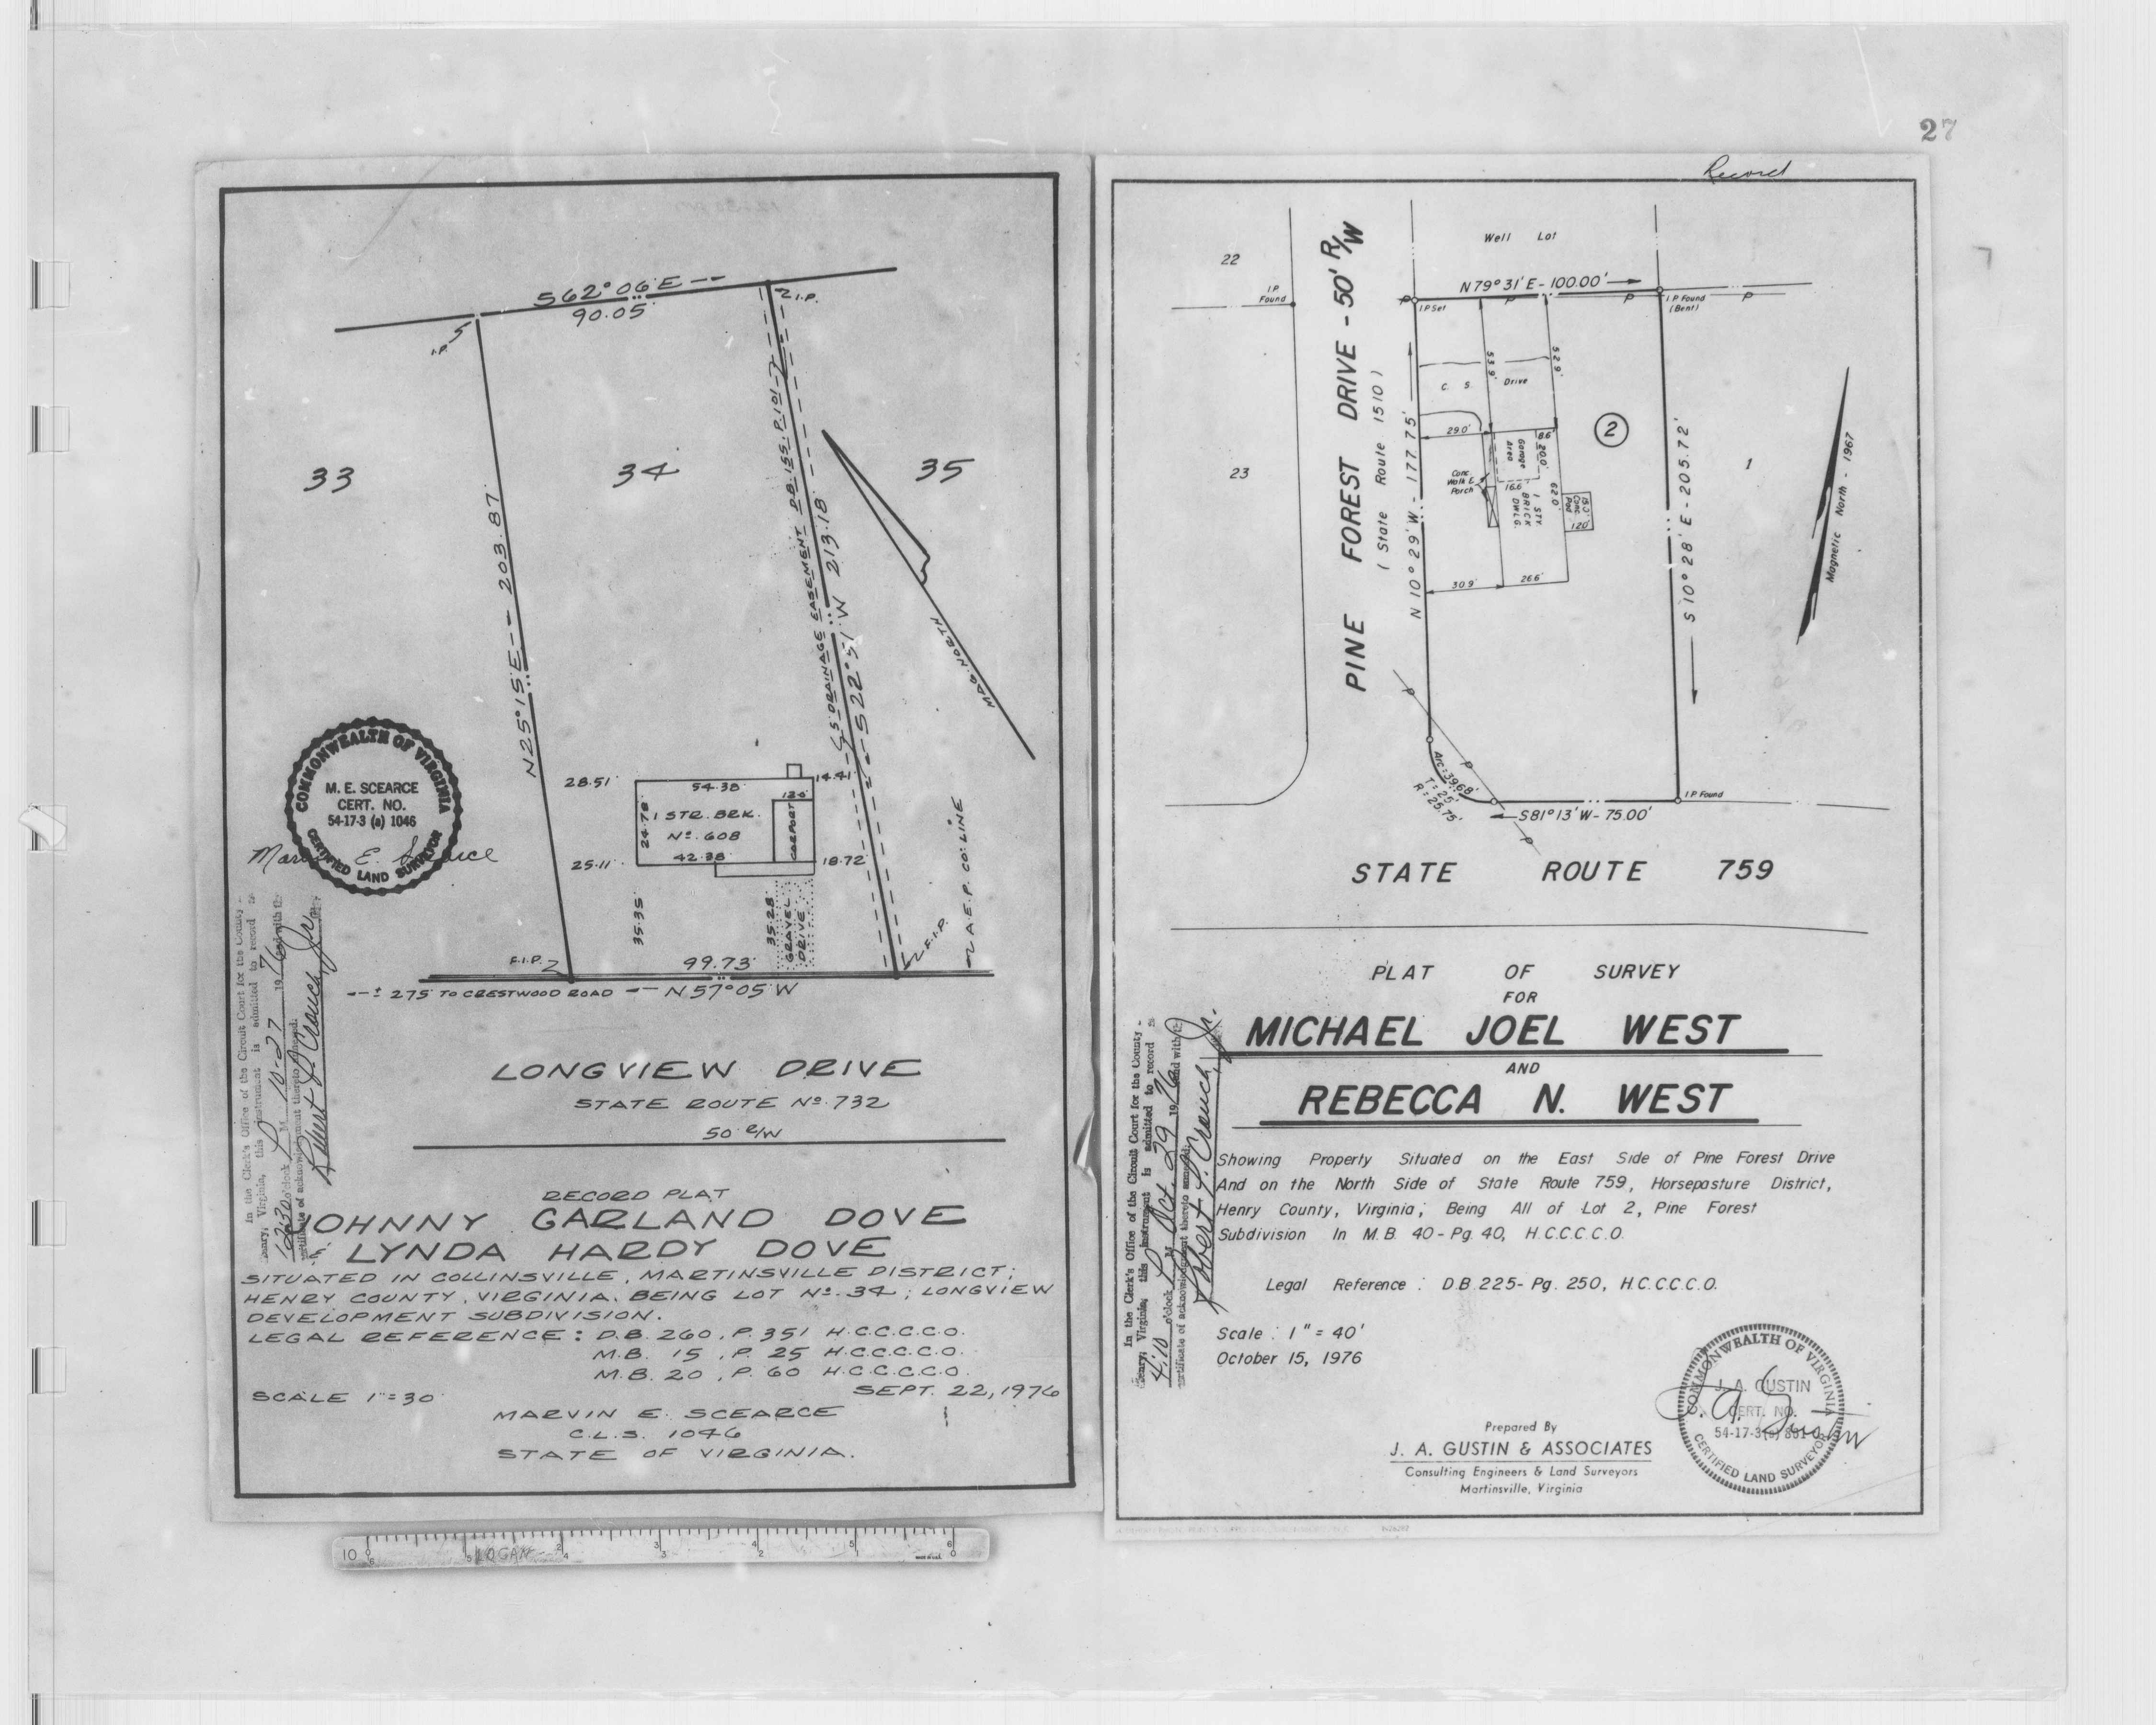 27
S62°06'E
90.05'
I.P.
I.P.
33
34
35
N25°15'E - 203.87'
5' DRAINAGE EASEMENT D.B. 155, P. 101
S22°51'W 213.18'
MAG. NORTH
28.51'
54.38'
14.41'
12.0'
24.78'
1 STR. BRK.
Nº 608
CARPORT
42.38'
25.11'
18.72'
35.35'
35.28'
GRAVEL
DRIVE
A.E.P. CO. LINE
F.I.P.
F.I.P.
99.73'
± 275' TO CRESTWOOD ROAD
N57°05'W
LONGVIEW DRIVE
STATE ROUTE Nº 732
50' R/W
COMMONWEALTH OF VIRGINIA
M. E. SCEARCE
CERT. NO.
54-17-3 (a) 1046
CERTIFIED LAND SURVEYOR
Marvin E. Scearce
In the Clerk's Office of the Circuit Court for the County
Henry, Virginia, this instrument is admitted to record
12:30 o'clock P. M. 10-27 1976 and with the
certificate of acknowledgment thereto annexed.
Robert L. Crouch, Jr.
RECORD PLAT
JOHNNY GARLAND DOVE
LYNDA HARDY DOVE
SITUATED IN COLLINSVILLE, MARTINSVILLE DISTRICT;
HENRY COUNTY, VIRGINIA. BEING LOT Nº. 34; LONGVIEW
DEVELOPMENT SUBDIVISION.
LEGAL REFERENCE: D.B. 260, P. 351 H.C.C.C.C.O.
M.B. 15, P. 25 H.C.C.C.C.O.
M.B. 20, P. 60 H.C.C.C.C.O.
SCALE 1"=30'
SEPT. 22, 1976
MARVIN E. SCEARCE
C.L.S. 1046
STATE OF VIRGINIA.
10
LOGAN
Record
Well Lot
22
I.P. Found
N79°31'E - 100.00'
P
P
P
P
I.P. Set
I.P. Found
(Bent)
PINE FOREST DRIVE - 50' R/W
( State Route 1510 )
N 10°29' W - 177.75'
53.9'
52.9'
C. S. Drive
2
29.0'
8.6'
Garage
Area
20.0'
Conc.
Walk &
Porch
16.6'
1 STY
BRICK
DWLG.
62.0'
15.0'
Conc.
Pad
12.0'
30.9'
26.6'
23
1
S 10° 28' E - 205.72'
Magnetic North - 1967
P
P
P
Arc=39.68'
T=25'
R=25.75'
I.P. Found
S81°13'W - 75.00'
STATE ROUTE 759
PLAT OF SURVEY
FOR
MICHAEL JOEL WEST
AND
REBECCA N. WEST
Showing Property Situated on the East Side of Pine Forest Drive
And on the North Side of State Route 759, Horsepasture District,
Henry County, Virginia; Being All of Lot 2, Pine Forest
Subdivision In M.B. 40 - Pg. 40, H.C.C.C.C.O.
Legal Reference : D.B. 225 - Pg. 250, H.C.C.C.C.O.
Scale : 1" = 40'
October 15, 1976
In the Clerk's Office of the Circuit Court for the County
Henry, Virginia, this instrument is admitted to record
4:10 o'clock P. M. Oct. 29 1976 and with the
certificate of acknowledgment thereto annexed.
Robert L. Crouch, Jr.
Prepared By
J. A. GUSTIN & ASSOCIATES
Consulting Engineers & Land Surveyors
Martinsville, Virginia
COMMONWEALTH OF VIRGINIA
J. A. GUSTIN
CERT. NO.
54-17-3(a) 831
CERTIFIED LAND SURVEYOR
J. A. Gustin